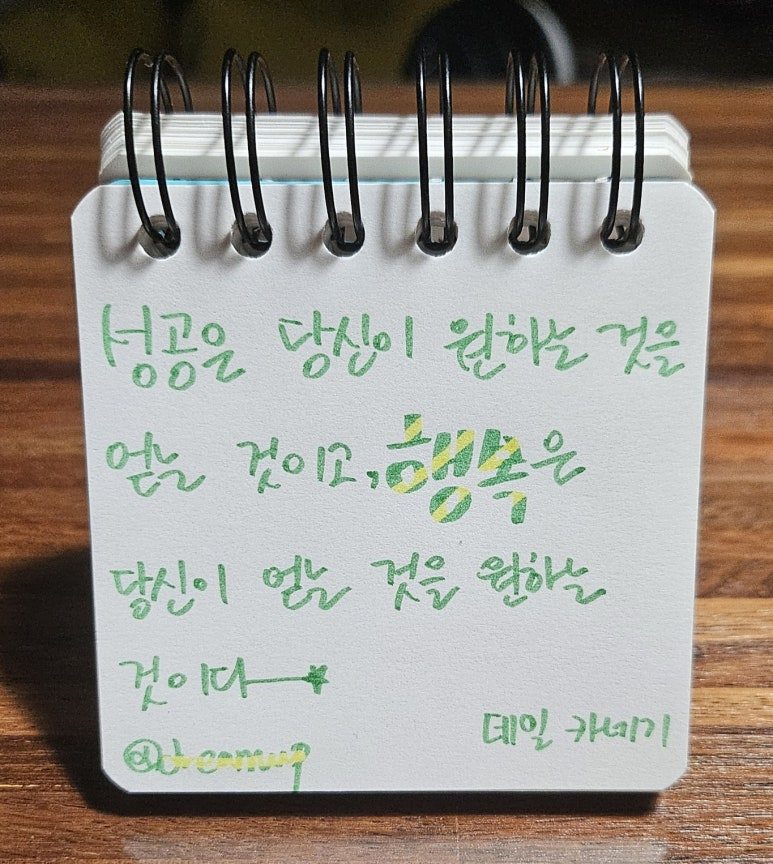 성공은 당신이 원하는 것을
얻는 것이고, 행복은
당신이 얻는 것을 원하는
것이다
데일 카네기
@dreamup